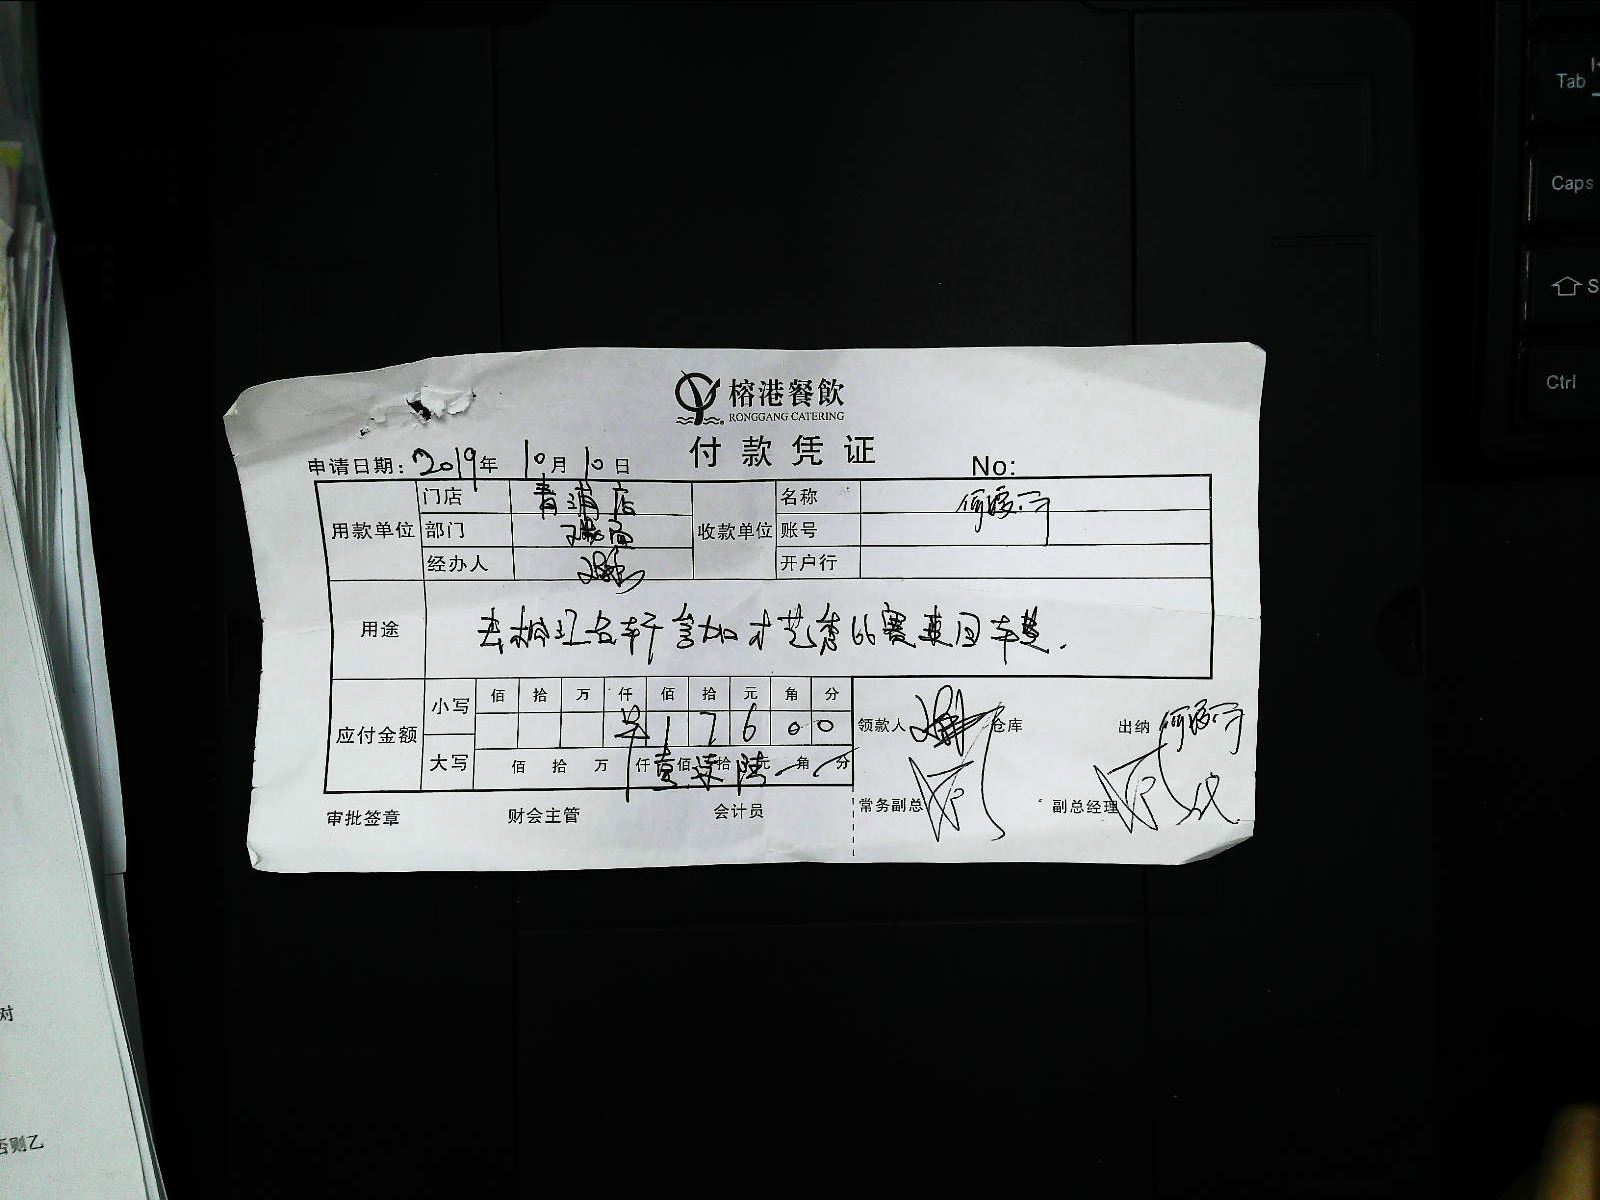 榕港餐飲
RONGGANG CATERING
付款凭证
申请日期: 2019年 10月 10日 No:
用款单位 门店 店 收款单位 名称
部门 账号
经办人 开户行
用途 去榕江名轩参加才艺秀比赛来回车费.
应付金额 小写 佰 拾 万 仟 佰 拾 元 角 分
羊 1 7 6 0 0
大写 佰 拾 万 仟 壹 佰 柒 拾 陆 元 角 分
领款人 仓库 出纳
常务副总 副总经理
审批签章 财会主管 会计员
Tab
Caps
S
Ctrl
对
否则乙